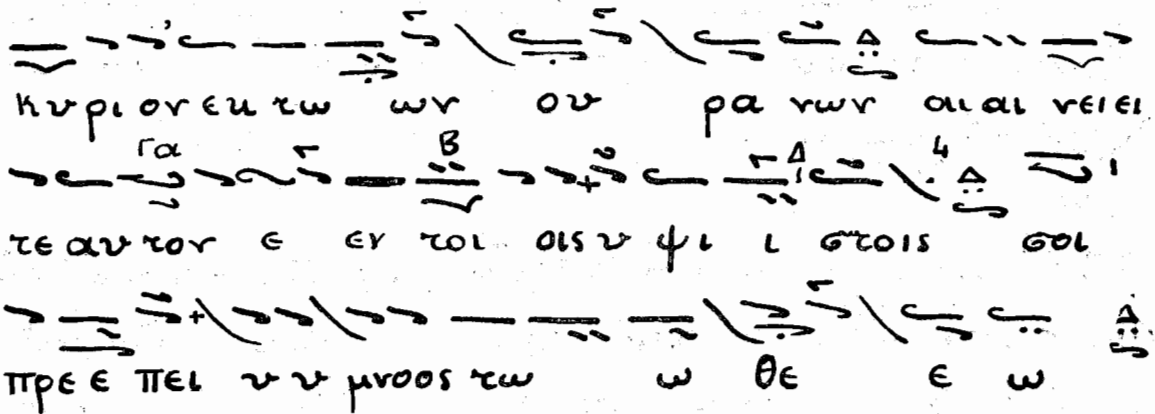 κυ ρι ον εκ τω ων ου ρα νων αι αι νει ει
τε αυ τον ε εν τοι οις υ ψι ι στοις σοι
πρε ε πει υ υ μνοος τω ω θε ε ω